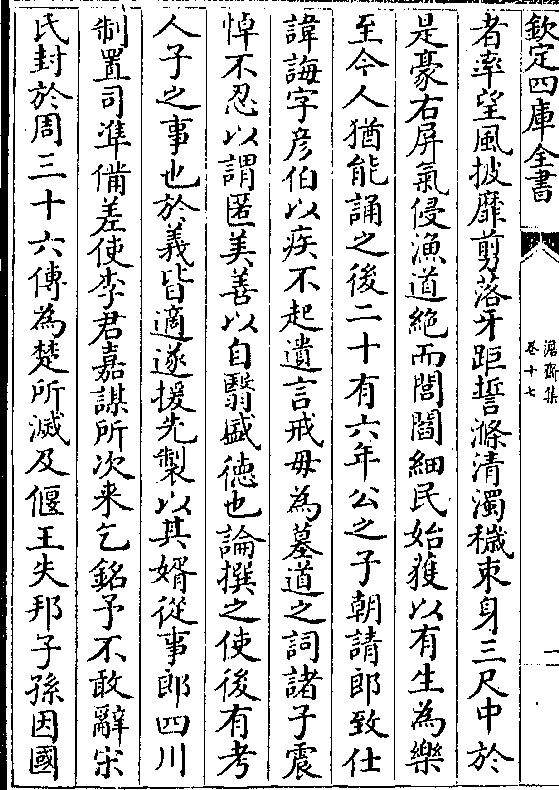 欽定四庫全書
卷十七
一
者率望風披靡剪落牙距誓滌清濁穢束身三尺中於
是豪右屏氣侵漁道絶而閭閻細民始獲以有生為樂
至今人猶能誦之後二十有六年公之子朝請郎致仕
諱誨字彦伯以疾不起遺言戒毋為墓道之詞諸子震
悼不忍以謂匿美善以自翳盛徳也論撰之使後有考
人子之事也於義皆適遂援先製以其婿從事郎四川
制置司準備差使李君嘉謀所次来乞銘予不敢辭宋
氏封於周三十六傳為楚所滅及偃王失邦子孫因國